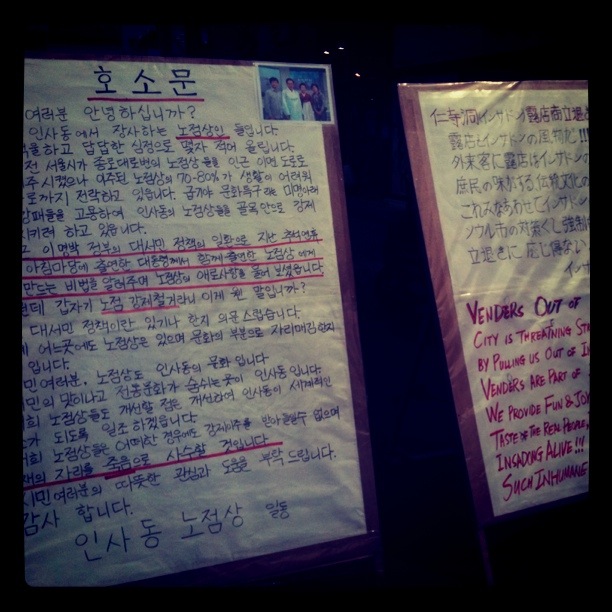 호소문
여러분 안녕하십니까?
인사동에서 장사하는 노점상인 들입니다.
하고 답답한 심정으로 몇자 적어 올립니다.
전 서울시가 종로대로변의 노점상들을 인근 이면도로로
주 시켰으나 이주된 노점상의 70-80%가 생활이 어려워
로까지 전락하고 있습니다. 급기야 문화특구라는 미명아래
강패들을 고용하여 인사동의 노점상들을 골목안으로 강제
시키려 하고 있읍니다.
이명박 정부의 대서민 정책의 일환으로 지난 추석연휴
아침마당에 출연한 대통령께서 함께 출연한 노점상에게
만드는 비법을 알려주며 노점상의 애로사항을 들어 보셨읍니다
데 갑자기 노점 강제철거라니 이게 웬 말입니까?
대서민 정책이란 있기나 한지 의문스럽습니다
어느곳에도 노점상은 있으며 문화의 부분으로 자리매김
입니다.
민여러분, 노점상도 인사동의 문화 입니다
민의 맛이나고 전통문화가 숨쉬는곳이 인사동 입니다.
희 노점상들도 개선할 점은 개선하여 인사동이 세계적인
가 되도록 일조 하겠읍니다.
저희 노점상들은 어떠한 경우에도 강제이주를 받아들일수 없으며
재의 자리를 죽음으로 사수할 것입니다.
시민여러분의 따뜻한 관심과 도움을 부탁드립니다.
감사 합니다.
인사동 노점상 일동
仁寺洞インサドン露店商立退き
露店とインサドンの風物!!!
外来客に露店はインサドンの
庶民の味がする伝統文化の
これみなあわせてインサドン
ソウル市の対策ぐし強制
立退きに応じ得ない
インサ
VENDERS OUT OF
CITY IS THREATNING ST
BY PULLING US OUT OF I
VENDERS ARE PART OF
WE PROVIDE FUN & JOY
TASTE OF THE REAL PEOPLE,
INSADONG ALIVE!!!
SUCH INHUMANE